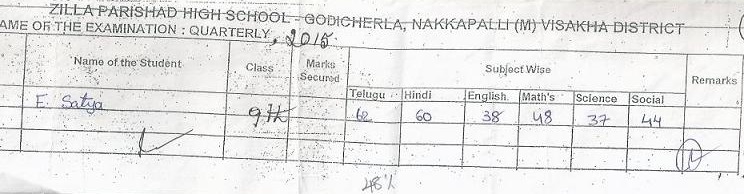 ZILLA PARISHAD HIGH SCHOOL - GODICHERLA, NAKKAPALLI (M) VISAKHA DISTRICT
AME OF THE EXAMINATION : QUARTERLY, 2015
Name of the Student Class Marks Secured Subject Wise Remarks
Telugu Hindi English Math's Science Social
E. Satya 9th 60 38 48 37 44
48%